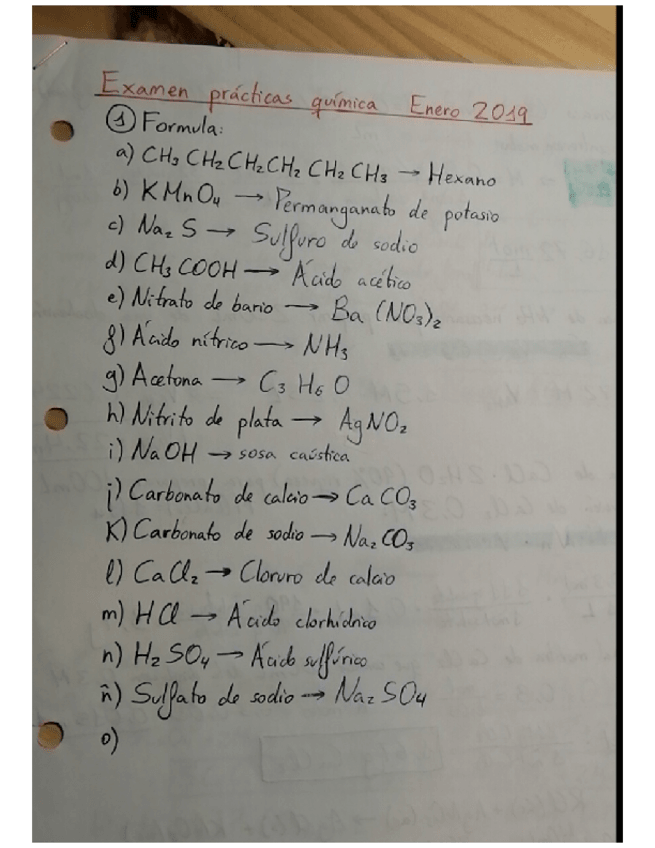 Examen prácticas química Enero 2019
① Formula:
a) CH₃ CH₂ CH₂ CH₂ CH₂ CH₃ → Hexano
b) KMnO₄ → Permanganato de potasio
c) Na₂ S → Sulfuro de sodio
d) CH₃ COOH → Ácido acético
e) Nitrato de bario → Ba (NO₃)₂
f) Ácido nítrico → NH₃
g) Acetona → C₃ H₆ O
h) Nitrito de plata → AgNO₂
i) NaOH → sosa caústica
j) Carbonato de calcio → CaCO₃
K) Carbonato de sodio → Na₂ CO₃
l) CaCl₂ → Cloruro de calcio
m) HCl → Ácido clorhídrico
n) H₂ SO₄ → Ácido sulfúrico
ñ) Sulfato de sodio → Na₂ SO₄
o)